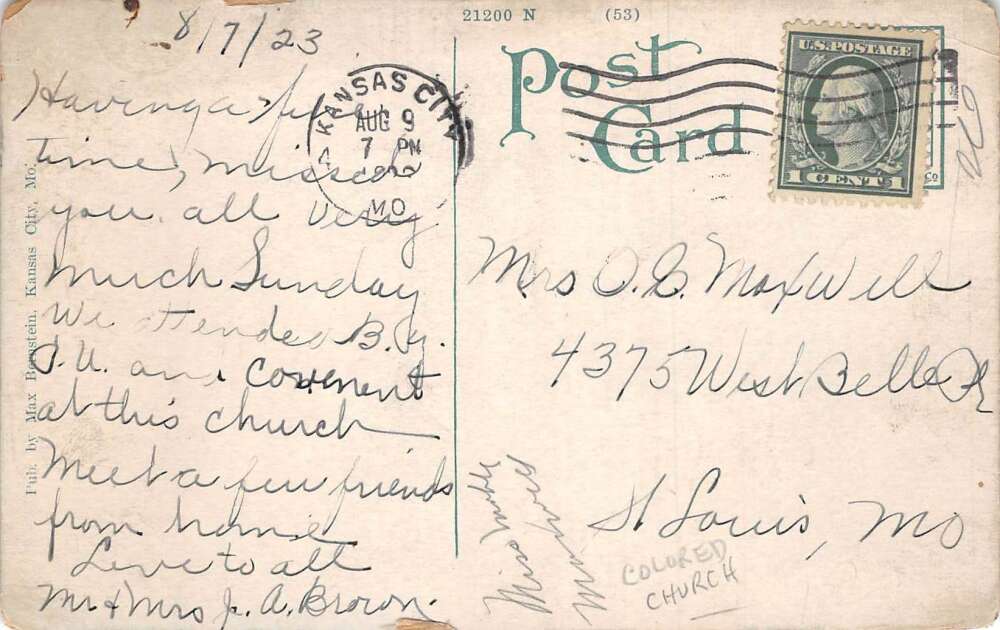 21200 N (53)
8/7/23
Post
Card
U.S. POSTAGE
1 CENT 1
KANSAS CITY
AUG 9
7 PM
MO
Having a fine
time, missed
you all very
much Sunday
We attended B. Y.
P. U. and Covenent
at this church
Meet a few friends
from home
Love to all
Mr & Mrs J. A. Brown.
Mrs O. G. Maxwell
4375 West Belle Pl
St Louis, Mo
COLORED
CHURCH
Pub. by Max Bernstein, Kansas City, Mo.